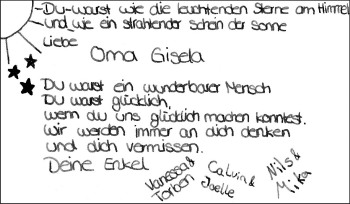 Du warst wie die leuchtenden Sterne am Himmel
und wie ein strahlender schein der sonne
Liebe
Oma Gisela
Du warst ein wunderbarer Mensch
Du warst glücklich,
wenn du uns glücklich machen konntest.
Wir werden immer an dich denken
und dich vermissen.
Deine Enkel
Vanessa &
Torben
Calvin &
Joelle
Nils &
Mika